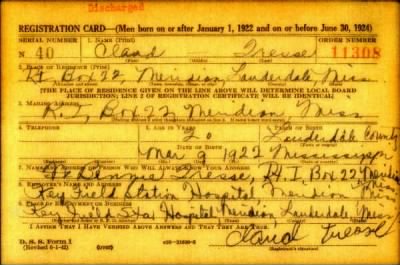 Discharged
REGISTRATION CARD—(Men born on or after January 1, 1922 and on or before June 30, 1924)
SERIAL NUMBER 1. NAME (Print) ORDER NUMBER
N 40 Claud 11308
2. PLACE OF RESIDENCE (Print)
Rt. Box 22 Meridian, Lauderdale Miss
[THE PLACE OF RESIDENCE GIVEN ON THE LINE ABOVE WILL DETERMINE LOCAL BOARD
JURISDICTION; LINE 2 OF REGISTRATION CERTIFICATE WILL BE IDENTICAL]
3. MAILING ADDRESS
R. I, Box 22 Meridian Miss
4. TELEPHONE 5. AGE IN YEARS 6. PLACE OF BIRTH
20 Lauderdale County
DATE OF BIRTH
Mar 9 1922 Mississippi
7. NAME AND ADDRESS OF PERSON WHO WILL ALWAYS KNOW YOUR ADDRESS
Rt. I Box 22 Meridian
Miss
8. EMPLOYER'S NAME AND ADDRESS
Key Field Station Hospital Meridian Miss
9. PLACE OF EMPLOYMENT OR BUSINESS
Key Field Sta. Hospital Meridian, Lauderdale, Miss
I AFFIRM THAT I HAVE VERIFIED ABOVE ANSWERS AND THAT THEY ARE TRUE.
D. S. S. Form 1
(Revised 6-1-42) (over)
Claud